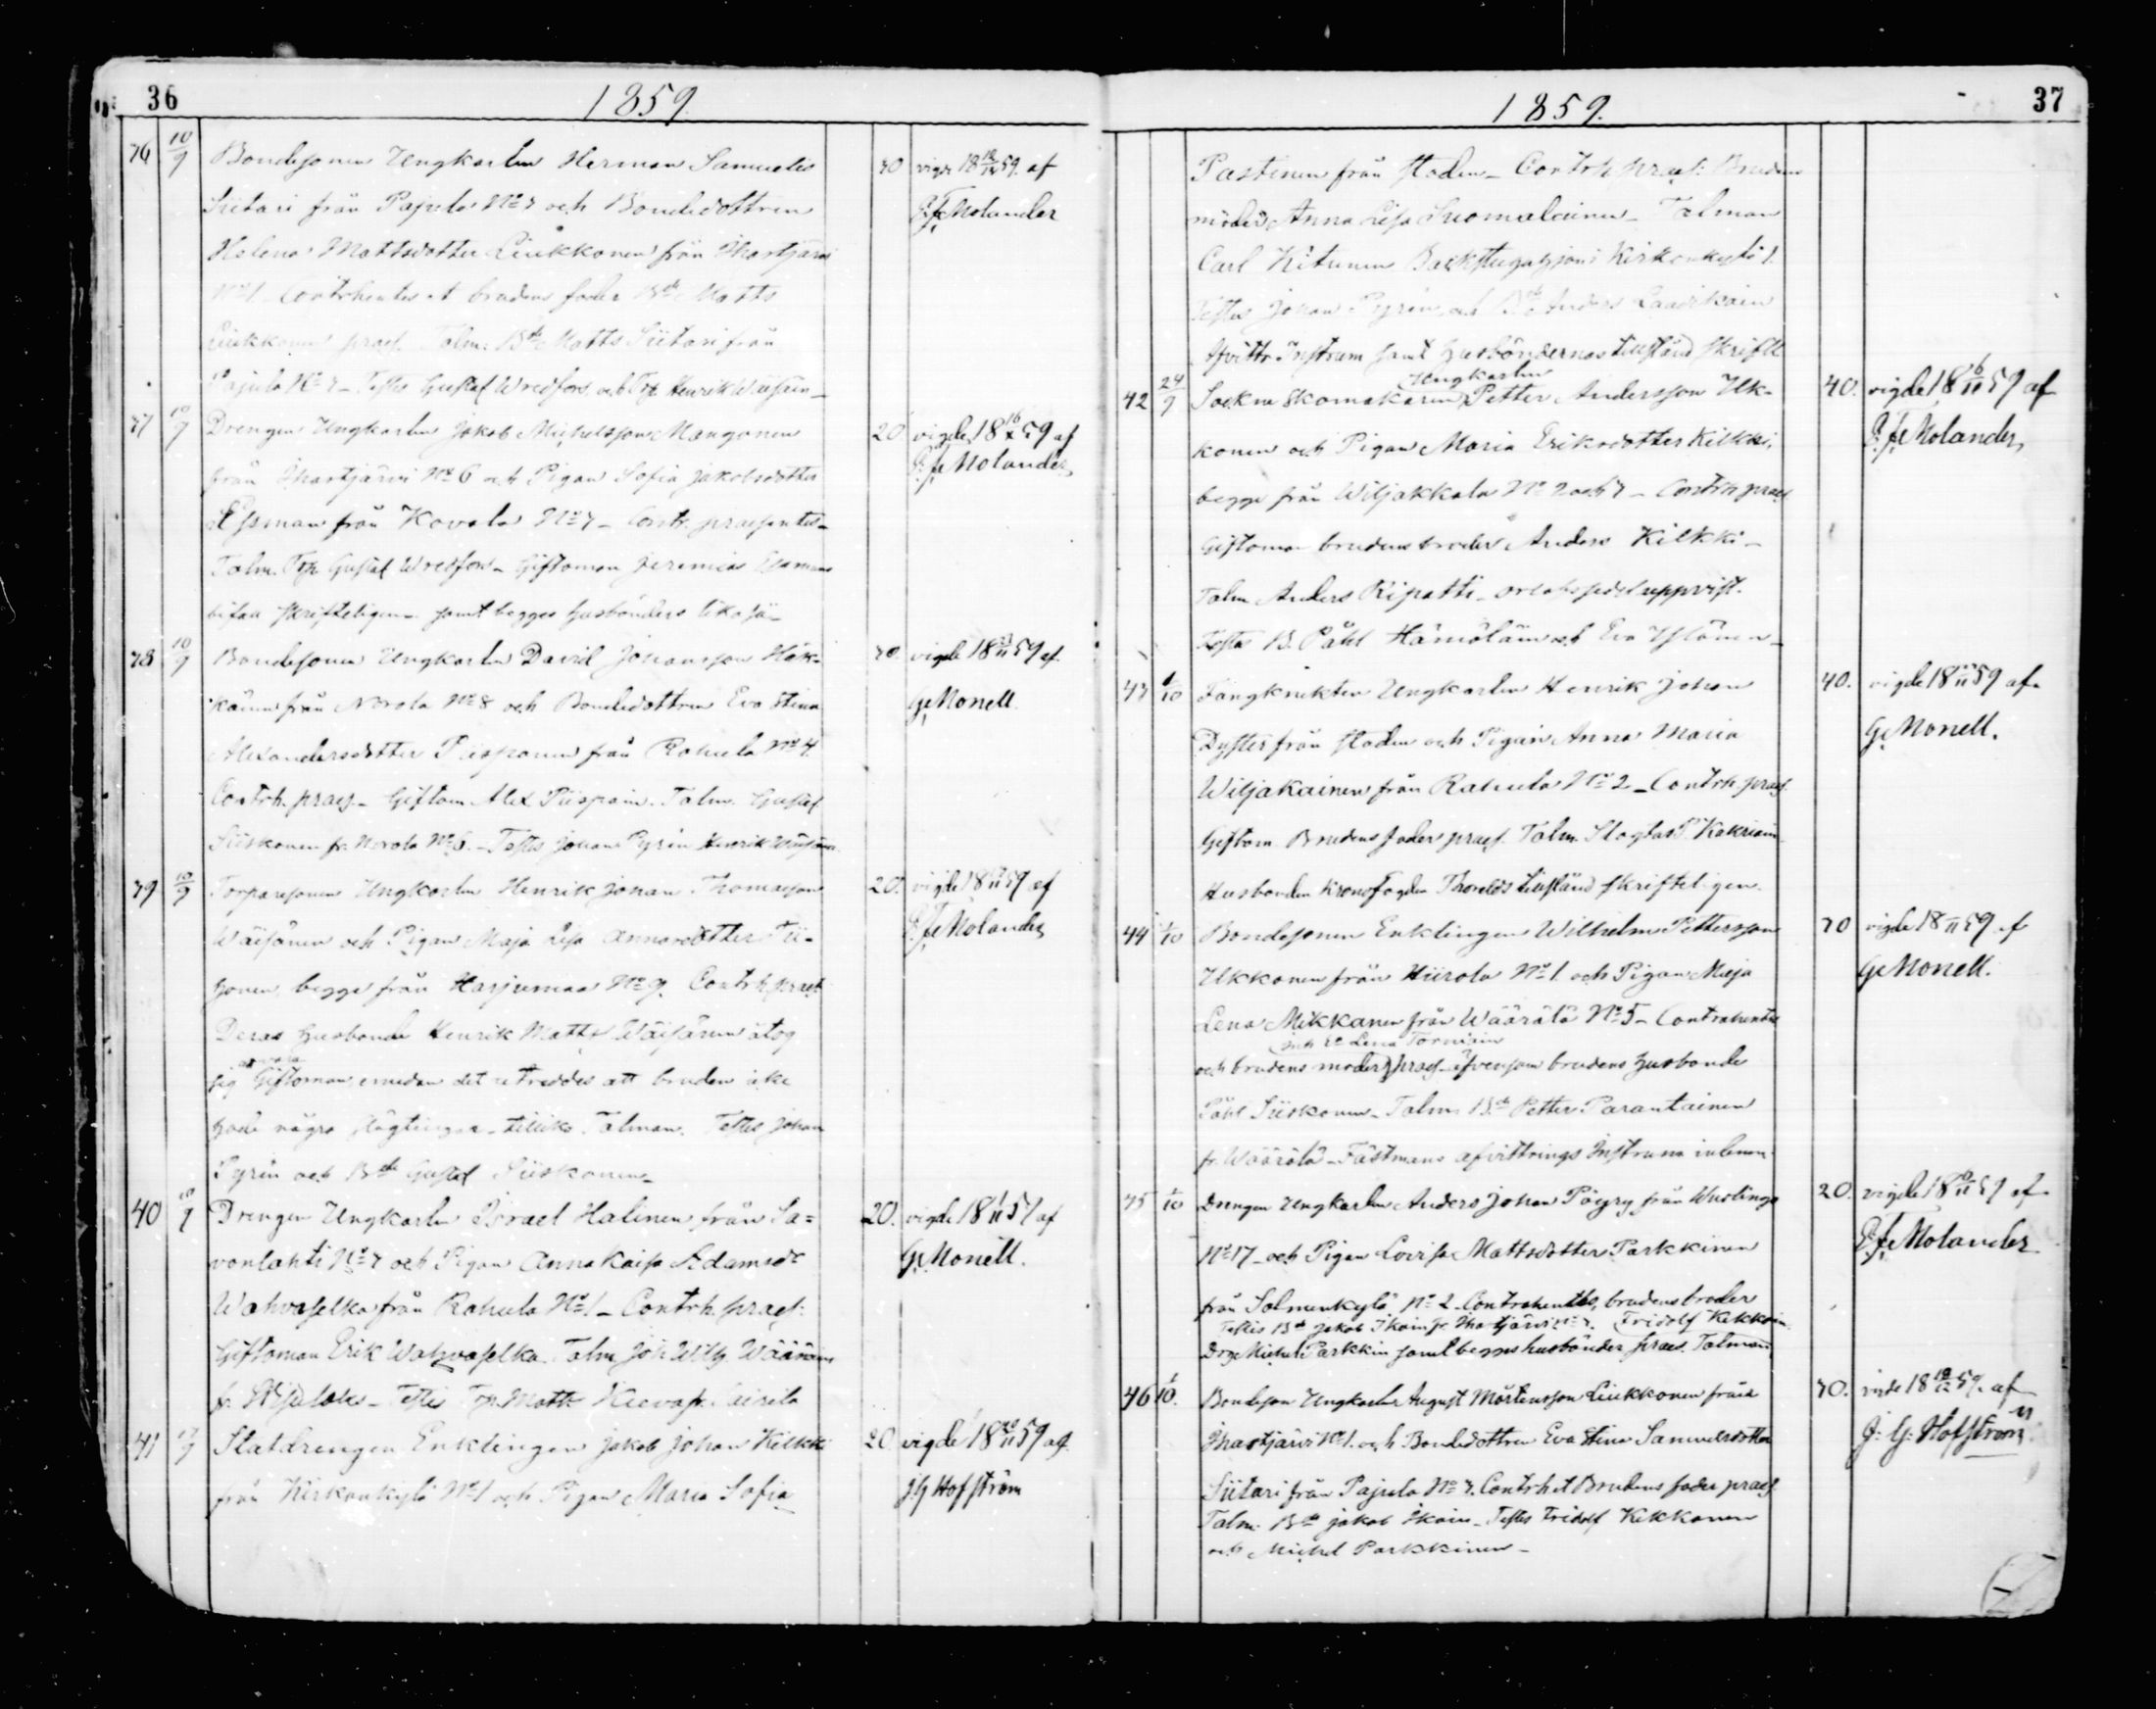 36
1859.
36 10/9 Bondesonen Ungkarlen Herman Samuelss 70 vigde 18 59. af
Siitari från Pajula No 7 och Bondedottren E. fr. Molander
Helena Mattsdotter Liukkonen från Ihastjärvi
No 1. Contrhentes et brudens fader Bde Matts
Liukkonen praes. Talm. Bde Matts Siitari från
Pajula No 7 – Testes Gustaf Wredfors och Trp Henrik Wäisäin –
37 10/9 Drengen Ungkarlen Jakob Michelsson Mangonen 20 vigde 18 16/X 59 af
från Ihastjärvi No 6 och Pigan Sofia Jakobsdotter E. fr. Molander
Essman från Kovala No 7 – Contr. praesentes –
Talm. Trp Gustaf Wredfors – Giftoman Jeremias Essman
bifaa skrifteligen – samt begges husbönders
38 10/9 Bondesonen Ungkarlen David Johansson Häk- 70. vigde 18 59 af
käinen från Norola No 8 och Bondedottren Eva Stina G. Monell
Alexandersdotter Piisponen från Rahula No 4.
Contrh. praes. – Giftom Alex Piispoin. Talm. Gustaf
Siiskonen fr. Norola No 6. – Testes Johan Pyrin Henrik Wäisäinen
39 10/9 Torparesonen Ungkarlen Henrik Johan Thomasson 20. vigde 18 59 af
Wäisänen och Pigan Maja Lisa Annasdotter E. fr. Molander
begge från Harjumaa No 9. Contrh. praes
Deras husbonde Henrik Matts Wäisänen åtog
sig att vara Giftoman emedan det utreddes att bruden icke
hade några slägtingar – tillika Talman. Testes Johan
Pyrin och Bde Gustaf Siiskonen –
40 10/9 Drengen Ungkarlen Israel Halinen från Sa= 20. vigde 18 1/11 59 af
vonlahti No 7 och Pigan Anna Kaisa Adamsdr G. Monell.
Wahvaselka från Rahula No 1 – Contrh. praes:
Giftoman Erik Wahvaselka. Talm Joh Wilh Wäänänen
fr. – Testes Trp. Matts
41 Statdrengen Enklingen Jakob Johan Kilkki 20. vigde 18 59 af
från Kirkonkylä No 1 och Pigan Maria Sofia J G Hofström
37
1859.
Pastinen från staden – Contrh praes: Brudens
moder Anna Lisa Suomalainen – Talman
Carl Kitunen Backstugahjon i Kirkonkylä 1.
Testes Johan Pyrin och Bde Anders Laarikain
Afvittr. Instrum samt husböndernas tillstånd skriftl.
42 24/9 Sockne Skomakaren Ungkarlen Petter Andersson Uk- 40. vigde 18 6/11 59 af
konen och Pigan Maria Eriksdotter Kilkki, E. fr. Molander
begge från Wiljakkala No 2 och 7 – Contrh praes
Giftoman brudens broder Anders Kilkki –
Talm Anders Ripatti – orlofssedel uppvist.
Testes B. Påhl Hämäläin och Eva
43 1/10 Fångknekten Ungkarlen Henrik Johan 40. vigde 18 59 af
Dyster från staden och Pigan Anna Maria G. Monell.
Wiljakainen från Rahula No 2 – Contrh praes.
Giftom. Brudens fader praes. Talm.
Husbonden Kronofogden tillstånd skrifteligen.
44 1/10 Bondesonen Enklingen Wilhelm Pettersson 70 vigde 18 59 af
Ukkonen från Hiirola No 1. och Pigan Maja G. Monell.
Lena Mikkanen från Wäärälä No 5 – Contrahentes
och brudens moder Lena Torniain praes – äfvensom brudens husbonde
Påhl Siiskonen – Talm. Bde Petter Parantainen
fr. Wäärälä – Fästmans afvittrings Instrum inlemn.
45 1/10 Drengen Ungkarlen Anders Johan Pöyry från Wuolinga 20. vigde 18 6/11 59 af
No 17 – och Pigan Lovisa Mattsdotter Parkkinen E. fr. Molander
från Salmenkylä No 2 – Contrahentes, brudens broder
Testes Bde Jakob Ikoin fr. Ihastjärvi No 7. Fridolf Kekkoin
Drg. Michel Parkkin samt begges husbönder praes. Talman
46 1/10. Bondeson Ungkarlen August Mårtensson Liukkonen från 70. vigde 18 59. af
Ihastjärvi No 1. och Bondedottren Eva Stina Samuelsdotter J: G: Hofström
Siitari från Pajula No 7. Contrh et Brudens fader praes.
Talm. Bde Jakob Ikoin – Testes Fridolf Kekkonen
och Michel Parkkinen –